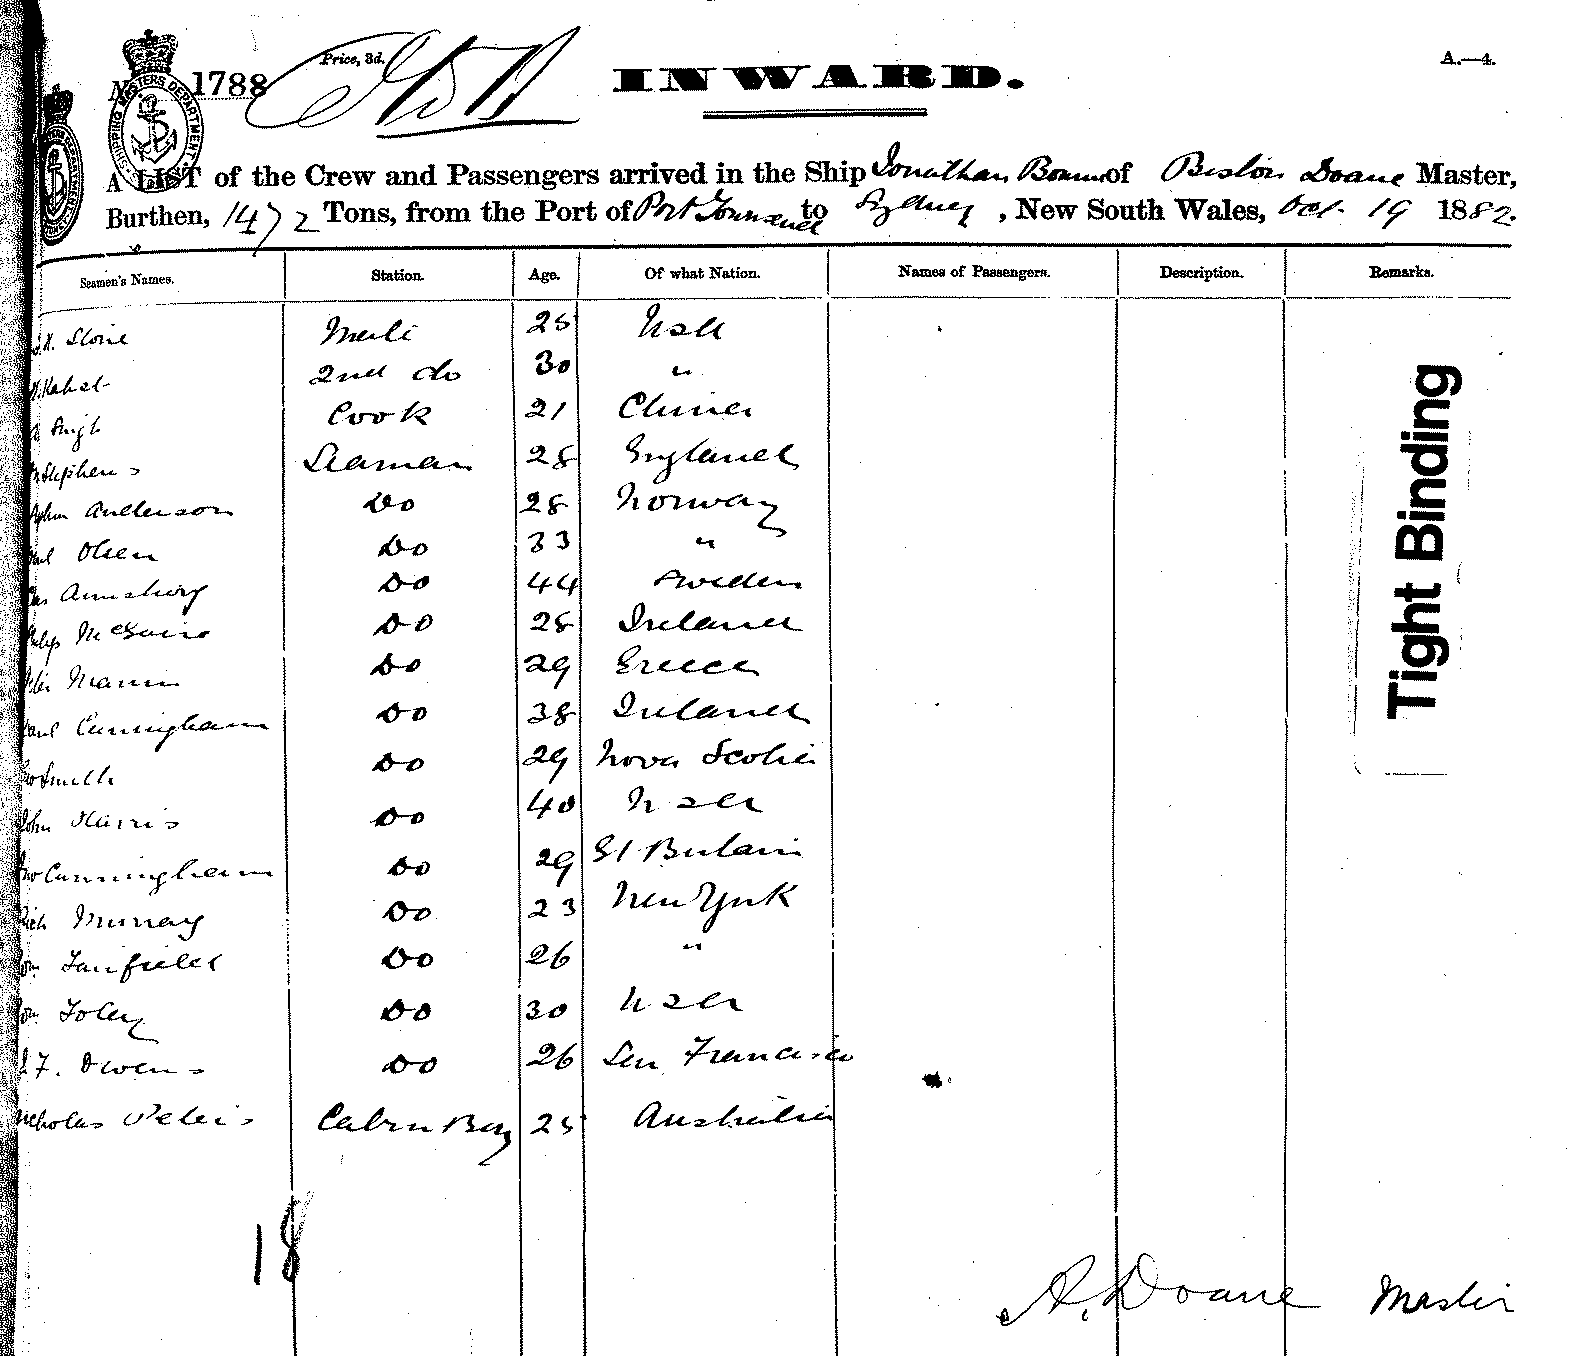 No. 1788
Price, 3d.
INWARD.
A.—4.
SHIPPING MASTERS DEPARTMENT
A LIST of the Crew and Passengers arrived in the Ship Jonathan Bourne of Boston Doane Master,
Burthen, 1472 Tons, from the Port of Port Townsend to Sydney, New South Wales, Oct. 19 1882.
Seamen's Names. Station. Age. Of what Nation. Names of Passengers. Description. Remarks.
Stone Mate 25 USA
2nd do 30 "
Cook 21 China
Stephens Seaman 28 England
Anderson Do 28 Norway
Olsen Do 33 "
Do 44 Sweden
McGuire Do 28 Ireland
Do 29 Greece
Cunningham Do 38 Ireland
Smith Do 29 Nova Scotia
John Harris Do 40 USA
Cunningham Do 29 Gt Britain
Murray Do 23 New York
Fairfield Do 26 "
Foley Do 30 USA
F. Owens Do 26 San Francisco
Nicholas Peters Cabin Boy 25 Australia
18
A. Doane Master
Tight Binding